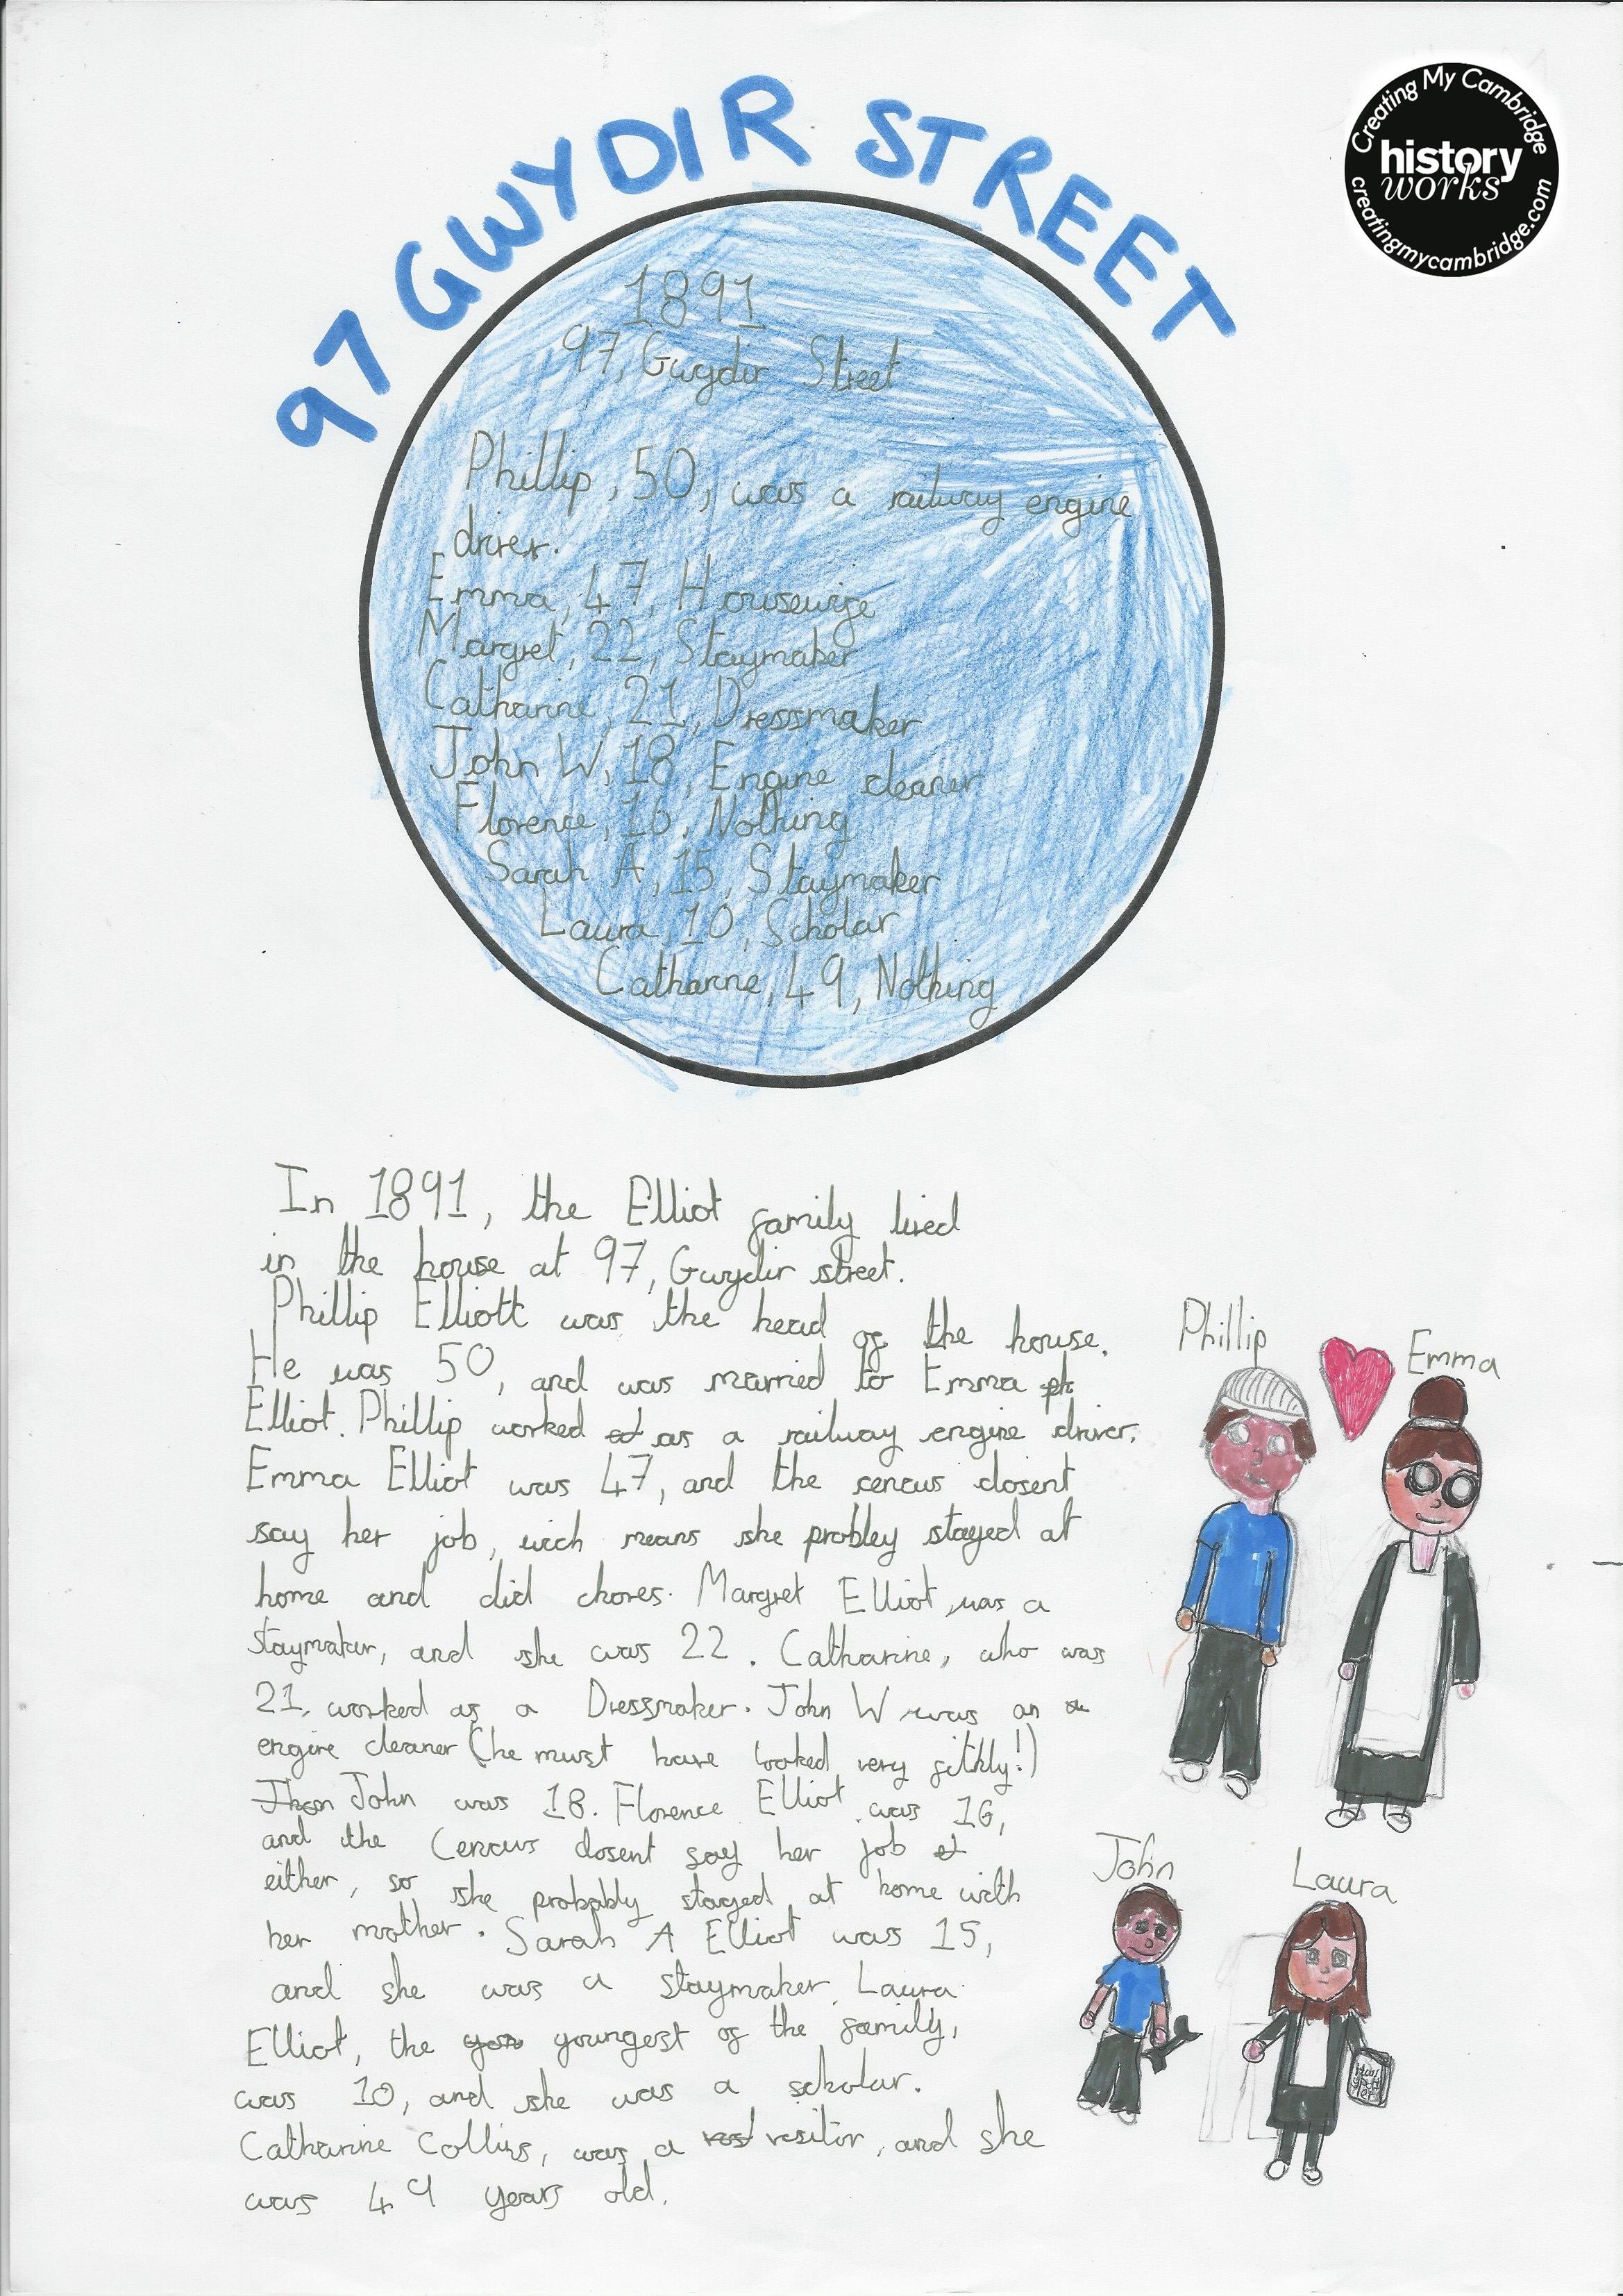 97 GWYDIR STREET
Creating My Cambridge
history
works
creatingmycambridge.com
1891
97, Gwydir Street
Phillip, 50, was a railway engine
driver.
Emma, 47, Housewife
Margret, 22, Staymaker
Catharine, 21, Dressmaker
John W, 18, Engine cleaner
Florence, 16, Nothing
Sarah A, 15, Staymaker
Laura, 10, Scholar
Catharine, 49, Nothing
In 1891, the Elliot family lived
in the house at 97, Gwydir street.
Phillip Elliott was the head of the house.
He was 50, and was married to Emma
Elliot. Phillip worked as a railway engine driver.
Emma Elliot was 47, and the cencus dosent
say her job, wich means she probley stayed at
home and did chores. Margret Elliot was a
staymaker, and she was 22. Catharine, who was
21, worked as a Dressmaker. John W was an
engine cleaner (he must have looked very filthly!)
John was 18. Florence Elliot was 16,
and the Cencus dosent say her job
either, so she probably stayed at home with
her mother. Sarah A Elliot was 15,
and she was a staymaker. Laura
Elliot, the youngest of the family,
was 10, and she was a scholar.
Catharine Collins, was a vesitor, and she
was 49 years old.
Phillip
Emma
John
Laura